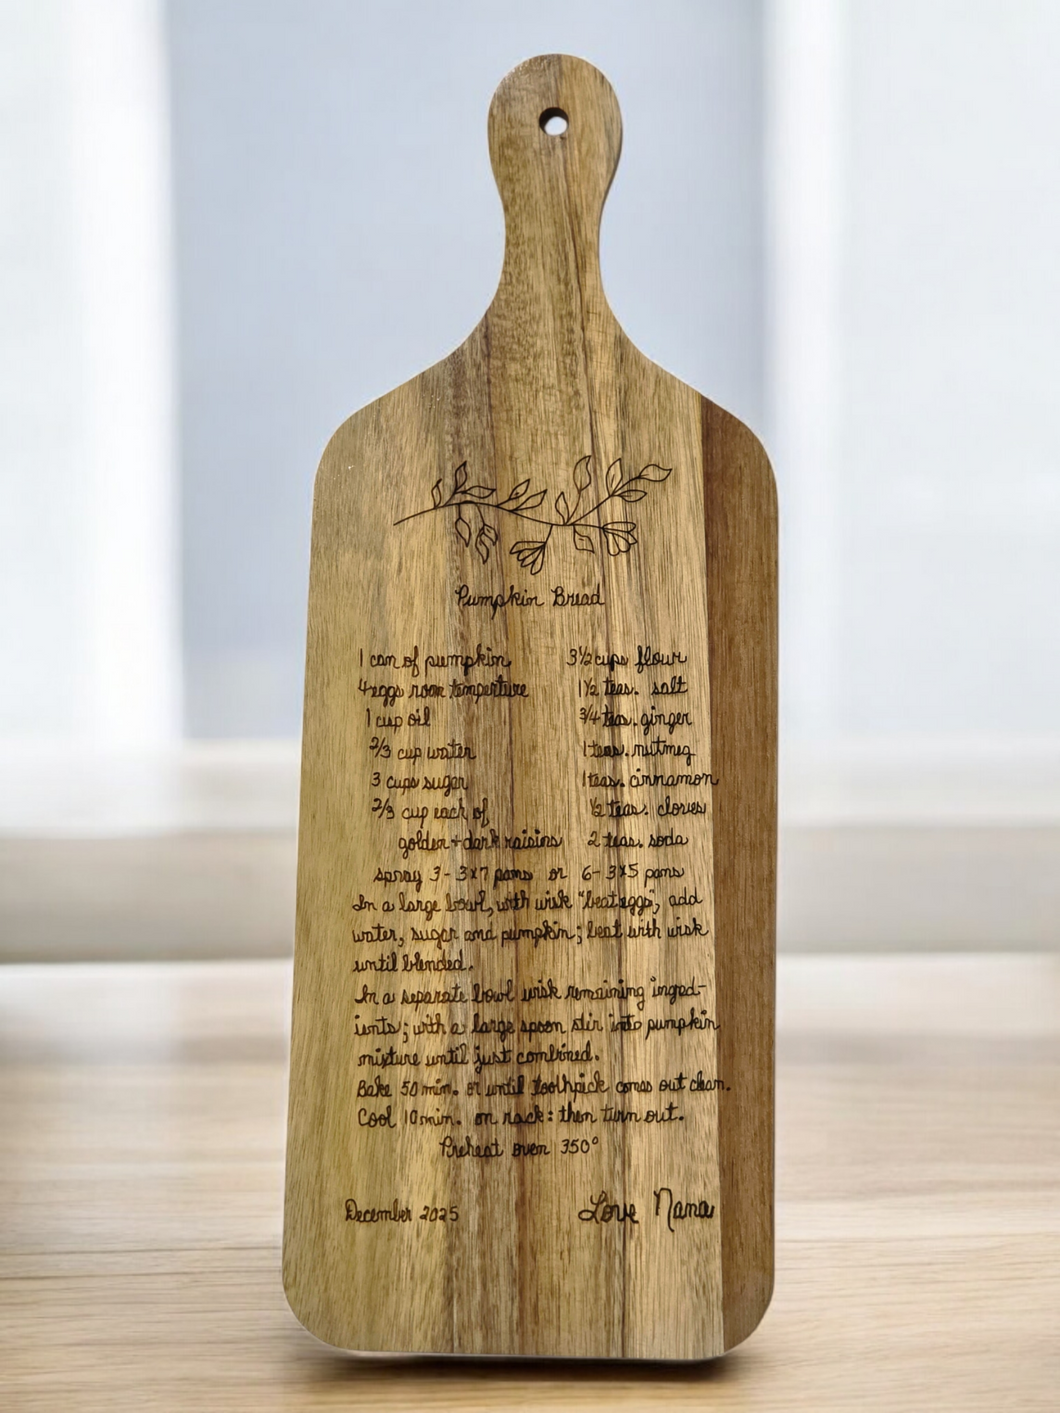 Pumpkin Bread
1 can of pumpkin
4 eggs room temperture
1 cup oil
2/3 cup water
3 cups sugar
2/3 cup each of
golden + dark raisins
3 1/2 cups flour
1 1/2 teas. salt
3/4 teas. ginger
1 teas. nutmeg
1 teas. cinnamon
1/2 teas. cloves
2 teas. soda
spray 3 - 3x7 pans or 6 - 3x5 pans
In a large bowl, with wisk "beat eggs", add
water, sugar and pumpkin; beat with wisk
until blended.
In a separate bowl wisk remaining ingred-
ients; with a large spoon stir into pumpkin
mixture until just combined.
Bake 50 min. or until toothpick comes out clean.
Cool 10 min. on rack: then turn out.
Preheat oven 350°
December 2025
Love Nana